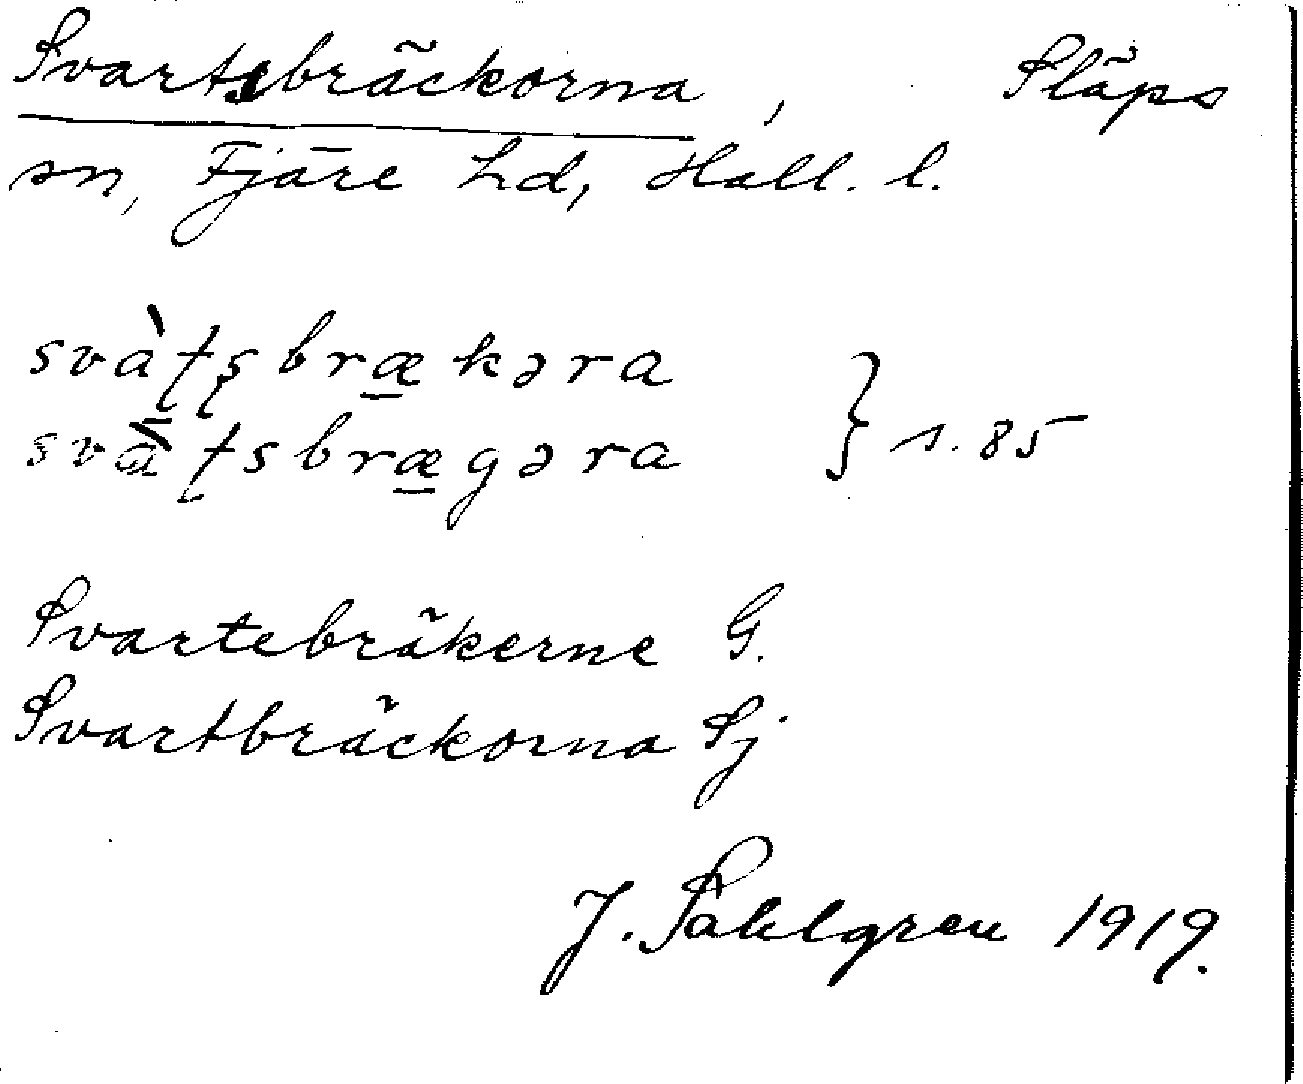 Svartsbräckorna, Släps
sn, Fjäre hd, Hall. l.
svàʈʂbræ̲kəra
svàʈsbræ̲gəra } s. 85
Svartebräkerne G.
Svartbräckorna Sj
J. Sahlgren 1919.